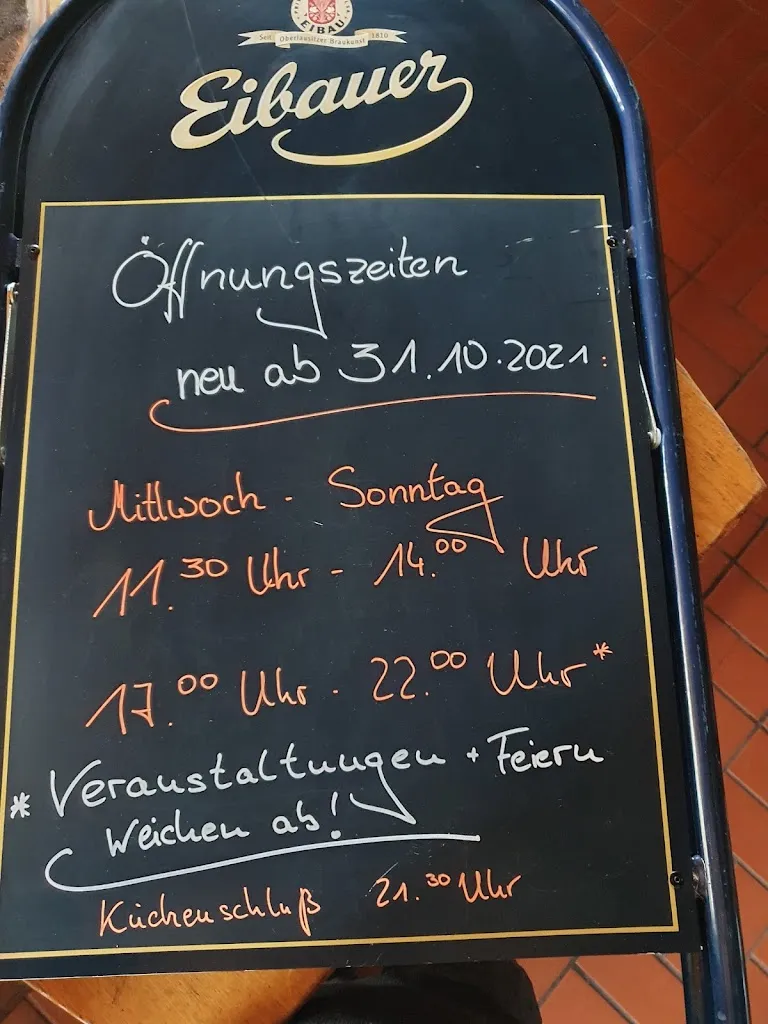 EIBAU
Seit Oberlausitzer Braukunst 1810
Eibauer
Öffnungszeiten
neu ab 31.10.2021:
Mittwoch - Sonntag
11.30 Uhr - 14.00 Uhr
17.00 Uhr - 22.00 Uhr*
* Veranstaltungen + Feiern
weichen ab!
Küchenschluß 21.30 Uhr